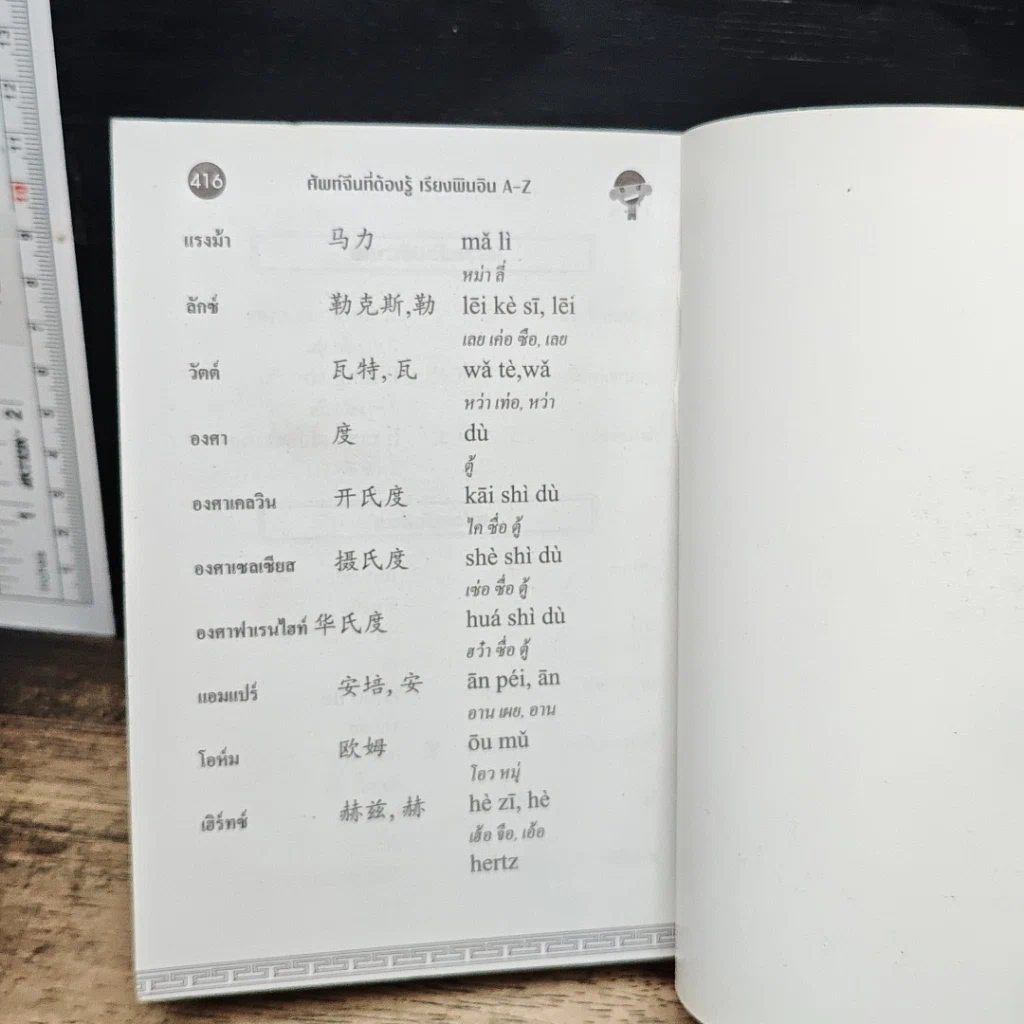 416 ศัพท์จีนที่ต้องรู้ เรียงพินอิน A-Z
แรงม้า 马力 mǎ lì
หม่า ลี่
ลักซ์ 勒克斯,勒 lēi kè sī, lēi
เลย เค่อ ซือ, เลย
วัตต์ 瓦特, 瓦 wǎ tè,wǎ
หว่า เท่อ, หว่า
องศา 度 dù
ตู้
องศาเคลวิน 开氏度 kāi shì dù
ไค ซื่อ ตู้
องศาเซลเซียส 摄氏度 shè shì dù
เซ่อ ซื่อ ตู้
องศาฟาเรนไฮท์ 华氏度 huá shì dù
ฮว๋า ซื่อ ตู้
แอมแปร์ 安培, 安 ān péi, ān
อาน เผย, อาน
โอห์ม 欧姆 ōu mǔ
โอว หมุ่
เฮิร์ทซ์ 赫兹, 赫 hè zī, hè
เฮ้อ จือ, เอ้อ
hertz